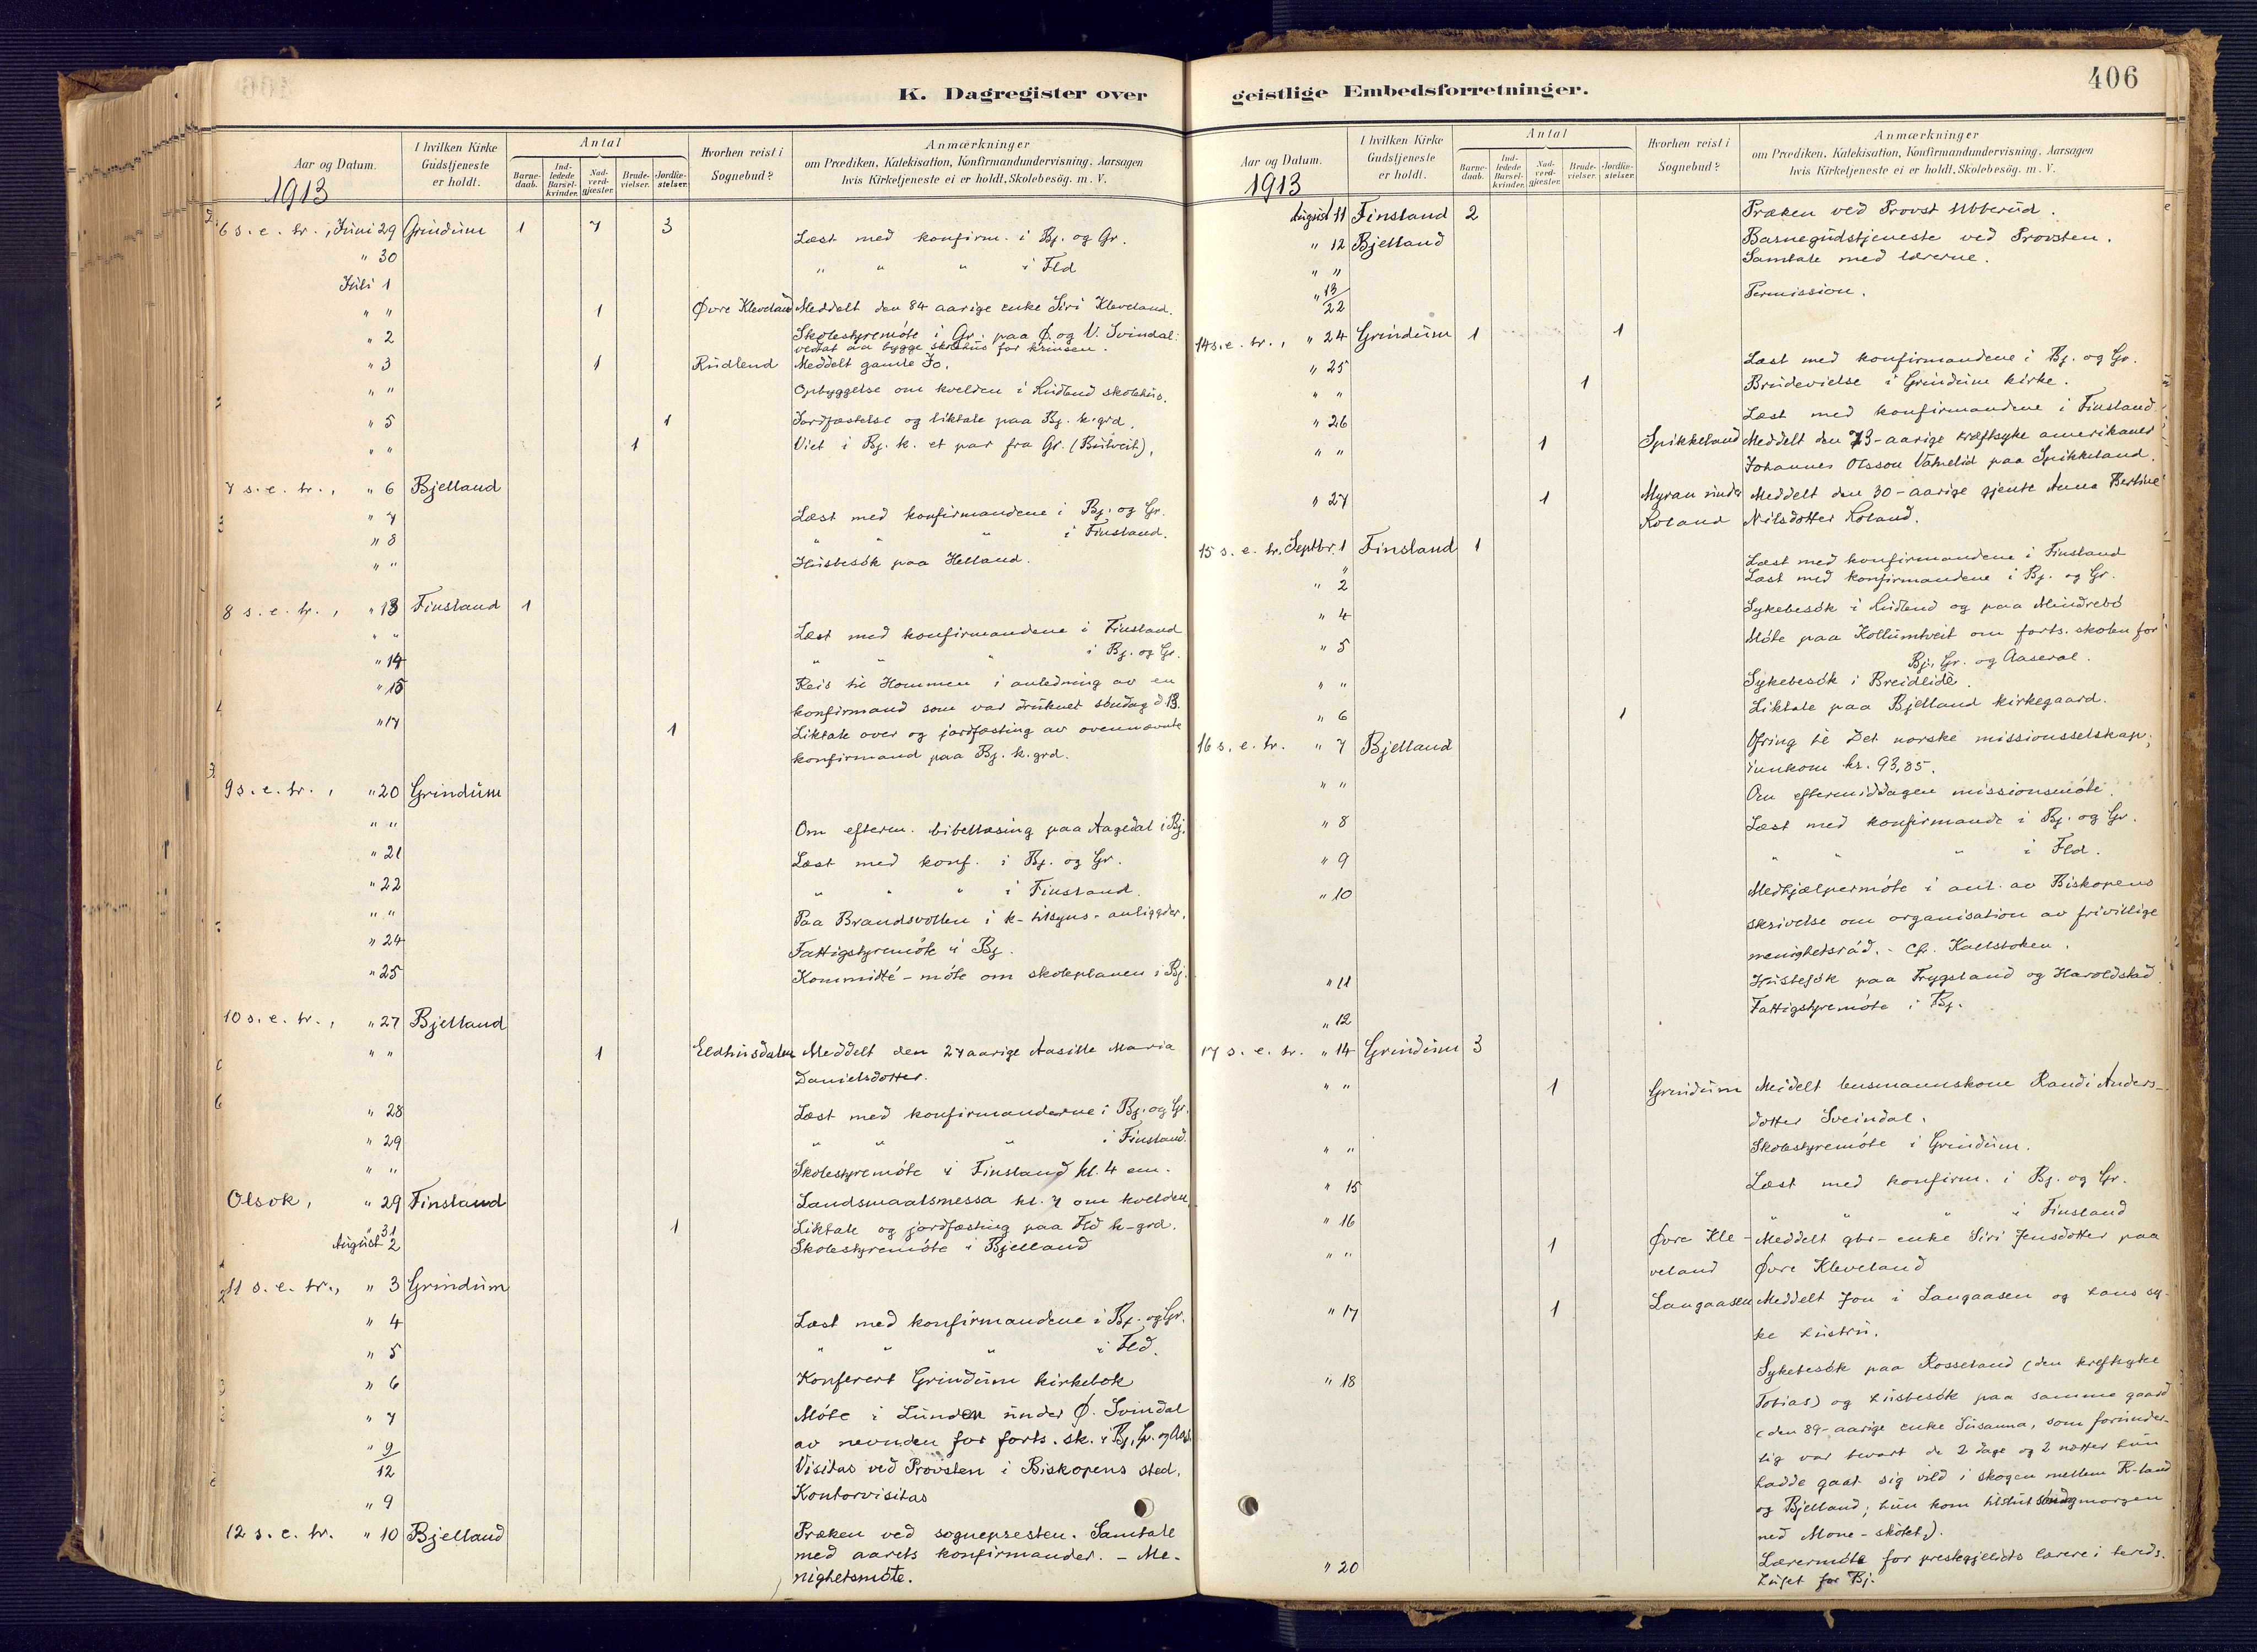 K. Dagregister over
Aar og Datum.
1913
I hvilken Kirke Gudstjeneste er holdt.
Antal
Barne-daab.
Ind-ledede Barsel-kvinder.
Nad-verd-gjæster.
Brude-vielser.
Jordfæ-stelser.
Hvorhen reist i Sognebud?
Anmærkninger
om Prædiken, Katekisation, Konfirmandundervisning, Aarsagen
hvis Kirketjeneste ei er holdt, Skolebesög. m. V.
6 s. e. tr., Juni 29 Grindum 1 7 3
" 30 Læst med konfirm. i Bj. og Gr.
Juli 1 " " " i Fld
" " 1 Øvre Kleveland Meddelt den 84 aarige enke Siri Kleveland.
" 2 Skolestyremöte i Gr. paa Ø. og V. Svindal:
vedtat aa bygge skolehus for krinsen.
" 3 1 Rudlend Meddelt gamle Jo.
" " Opbyggelse om kvelden i Rudlend skolehus.
" 5 1 Jordfæstelse og liktale paa Bj. k.grd.
" " 1 Viet i Bj. k. et par fra Gr.
7 s. e. tr., " 6 Bjelland
" 7 Læst med konfirmandene i Bj. og Gr.
" 8 " " " i Finsland.
" " Husbesök paa Helland.
8 s. e. tr., " 13 Finsland 1
" " Læst med konfirmandene i Finsland
" 14 " " " i Bj. og Gr.
" 15 Reis til Hommen i anledning av en
konfirmand som var druknet söndag d 13.
" 17 1 Liktale over og jordfæsting av ovennævnte
konfirmand paa Bj. k.grd.
9 s. e. tr., " 20 Grindum
" " Om efterm. bibellæsing paa Aagedal i Bj.
" 21 Læst med konf. i Bj. og Gr.
" 22 " " " i Finsland.
" " Paa Brandsvollen i k-tilsyns-anliggder.
" 24 Fattigstyremöte i Bj.
" 25 Kommidté-möte om skoleplanen i Bj.
10 s. e. tr., " 27 Bjelland
" " 1 Eldhusdalen Meddelt den 27 aarige Aasille Maria
Danielsdotter.
" 28 Læst med konfirmanderne i Bj. og Gr.
" 29 " " " i Finsland.
" " Skolestyremöte i Finsland kl. 4 em.
Olsok, " 29 Finsland Landsmaalsmessa kl. 7 om kvelden.
" 31 1 Liktale og jordfæsting paa Fld k-grd.
August 2 Skolestyremöte i Bjelland
11 s. e. tr., " 3 Grindum
" 4 Læst med konfirmandene i Bj. og Gr.
" 5 " " " i Fld.
" 6 Konferert Grindum kirkebok
" 7 Möte i Lunden under Ø. Svindal
av nevnden for forts. sk. i Bj., Gr. og Aas.
" 9/12 Visitas ved Provsten i Biskopens sted.
" 9 Kontorvisitas
12 s. e. tr. " 10 Bjelland Præken ved sognepresten. Samtale
med aarets konfirmander. - Me-
nighetsmöte.
geistlige Embedsforretninger.
406
Aar og Datum.
1913
I hvilken Kirke Gudstjeneste er holdt.
Antal
Barne-daab.
Ind-ledede Barsel-kvinder.
Nad-verd-gjæster.
Brude-vielser.
Jordfæ-stelser.
Hvorhen reist i Sognebud?
Anmærkninger
om Prædiken, Katekisation, Konfirmandundervisning, Aarsagen
hvis Kirketjeneste ei er holdt, Skolebesög. m. V.
August 11 Finsland 2 Præken ved Provst Ubberud.
" 12 Bjelland Barnegudstjeneste ved Provsten.
" " Samtale med lærerne.
" 13/22 Permission.
14 s. e. tr., " 24 Grindum 1 1
" 25 Læst med konfirmandene i Bj. og Gr.
" " 1 Brudevielse i Grindum kirke.
" 26 Læst med konfirmandene i Finsland.
" " 1 Spikkeland Meddelt den 73-aarige kræftsyke amerikaner
Johannes Olsson paa Spikkeland.
" 27 1 Myran under Meddelt den 30-aarige gjente Anna Bertine
Roland Nilsdotter Roland.
15 s. e. tr. Septbr. 1 Finsland 1
" Læst med konfirmandene i Finsland
" 2 Læst med konfirmandene i Bj. og Gr.
" 4 Sykebesök i Rudlend og paa Mindrebö
" 5 Möte paa Kollumtveit om forts. skolen for
Bj, Gr. og Aaseral.
" " Sykebesök i Breidlide.
" 6 1 Liktale paa Bjelland kirkegaard.
16 s. e. tr. " 7 Bjelland Ofring til Det norske missionsselskap;
innkom kr. 93,85.
" " Om eftermiddagen missionsmöte.
" 8 Læst med konfirmande i Bj. og Gr.
" 9 " " " i Fld.
" 10 Medhjælpermöte i anl. av Biskopens
skrivelse om organisation av frivillige
menighetsråd. - Cfr. Kallsboken.
" 11 Husbesök paa Trygsland og Haroldstad
" 12 Fattigstyremöte i Bj.
17 s. e. tr. " 14 Grindum 3
" " 1 Grindum Meddelt lensmannskone Randi Anders-
dotter Sveindal.
" " Skolestyremöte i Grindum.
" 15 Læst med konfirm. i Bj. og Gr.
" 16 " " " i Finsland
" " 1 Øvre Kle- Meddelt gbr-enke Siri Jensdotter paa
veland Øvre Kleveland
" 17 1 Langaasen Meddelt Jon i Langaasen og hans sy-
ke hustru.
" 18 Sykebesök paa Rosseland (den kreftsyke
Tobias) og husbesök paa samme gaard
(den 89-aarige enke Susanna, som forunder-
lig var bevart de 2 dage og 2 nætter hun
hadde gaat sig vild i skogen mellem R-land
og Bjelland; hun kom tilslut söndagmorgen
ned Mone-skolet).
" 20 Lærermöte for prestegjeldets lærere i hereds-
huset for Bj.